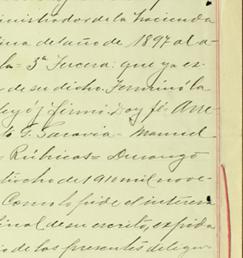 ministrador de la hacienda
ina del año de 1897 al a-
la = 3ª Tercera: que ya ex
de su dicho. Terminó la
leyó y firmó. Doy fé = Arre
G. Saravia = Manuel
Rúbricas = Durango
ocho de 1910 mil nove
Como lo pide el interes
inal de su escrito, expida
de las presentes diligen